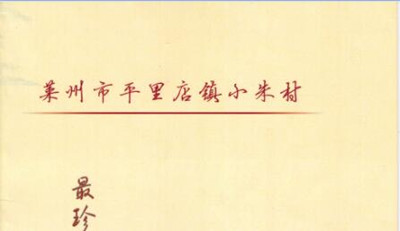 莱州市平里店镇小朱村
最珍